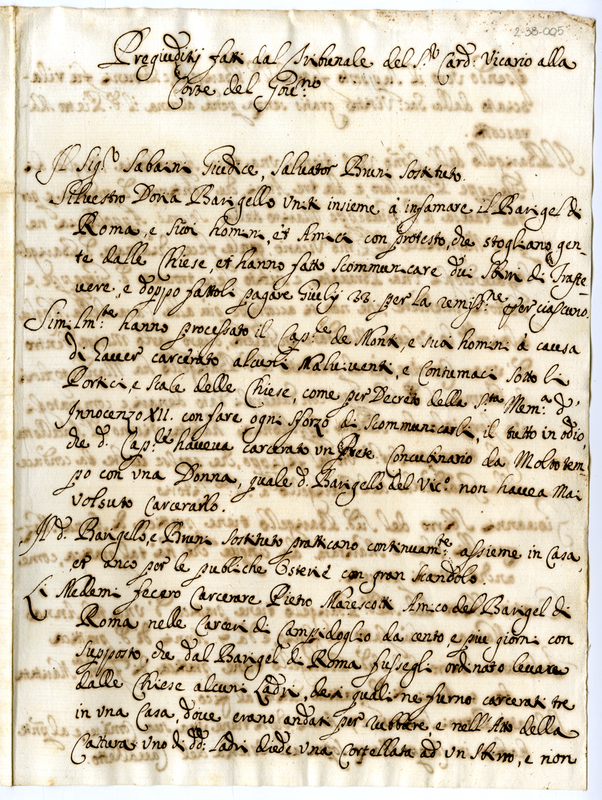 2-38-005
Pregiuditij fatti dal Tribunale del Sr. Card: Vicario alla
Corte del Gou:no
Il Sigr. Sabaini Giudice, Saluator Bruni Sostituto.
Siluestro Doria Barigello Uniti insieme à infamare il Barigel di
Roma, e suoi homini, et Amici con protesto, che stogliano gen-
te dalle Chiese, et hanno fatto scommunicare dui Sbirri di Traste-
uere, e doppo fattoli pagare Giulij 33. per la remissne. per ciascuno.
Similmte: hanno processato il Cap.le de Monti, e suoi homini à causa
di hauer carcerato alcuni Maluiuenti, e Contumaci sotto li
Portici, e scale delle Chiese, come per Decreto della Sta. Mem:a d'
Innocenzo XII. con fare ogni sforzo di scommunicarli, il tutto in odio,
che d. Cap.le haueua carcerato un Prete Concubinario da Molto tem-
po con una Donna, quale d. Barigello del Vic.o non hauea Mai
Volsuto Carcerarlo.
Il d. Barigello, e Bruni Sostituto pratticano continuam:te assieme in Casa,
et anco per le publiche Osterie con gran scandolo.
Li Medemi fecero Carcerare Pietro Marescotti Amico del Barigel di
Roma nelle Carceri di Campidoglio da cento, e più giorni con
supposto, che dal Barigel di Roma fussegli ordinato leuare
dalle Chiese alcuni Ladri, de i quali ne furno carcerati tre
in una Casa, doue erano andati per rubbare, e nell'Atto della
Cattura uno di dd: Ladri diede una Cortellata ad un Sbirro, e non